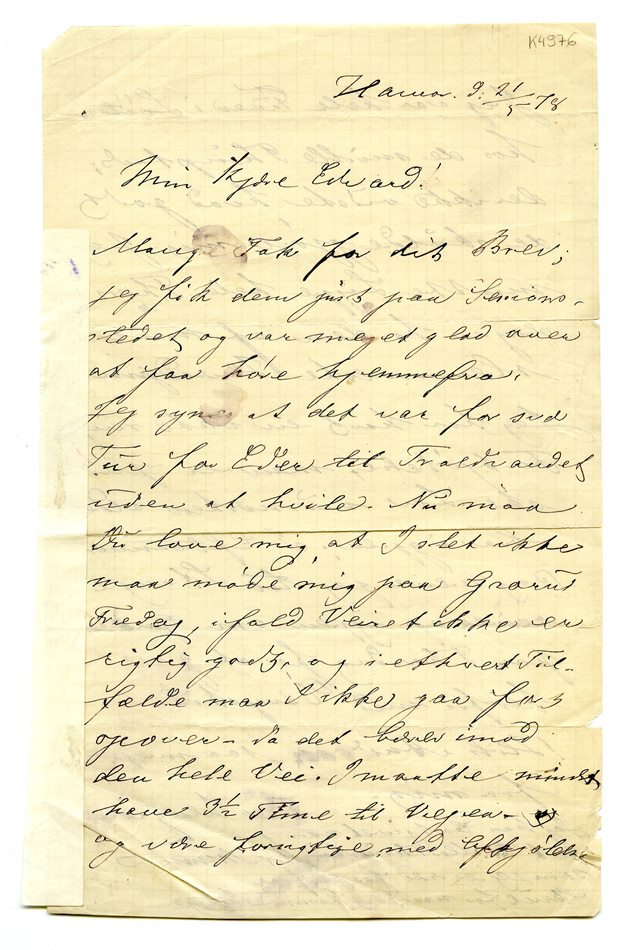 K4976
Hamar. d: 21/5 78
Min Kjære Edvard!
Mange Tak for dit Brev;
jeg fik dem just paa
stedet og var meget glad over
at faa høre hjemmefra.
Jeg synes at det var for svd
Tur for Eder til Troldvandet
uden at hvile. Nu maa
Du love mig at I slet ikke
maa møde mig paa Grorud
Fredag, ifald Veiret ikke er
rigtig godt, og i ethvert Til-
fælde maa I ikke gaa fort
opover – da det bærer imod
den hele Vei. I maatte mindst
have 3½ Time til Veien –
og være forsigtige med Afkjøldse